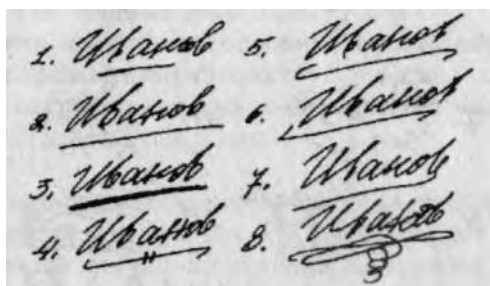 1. Иванов 5. Иванов
2. Иванов 6. Иванов
3. Иванов 7. Иванов
4. Иванов 8. Иванов